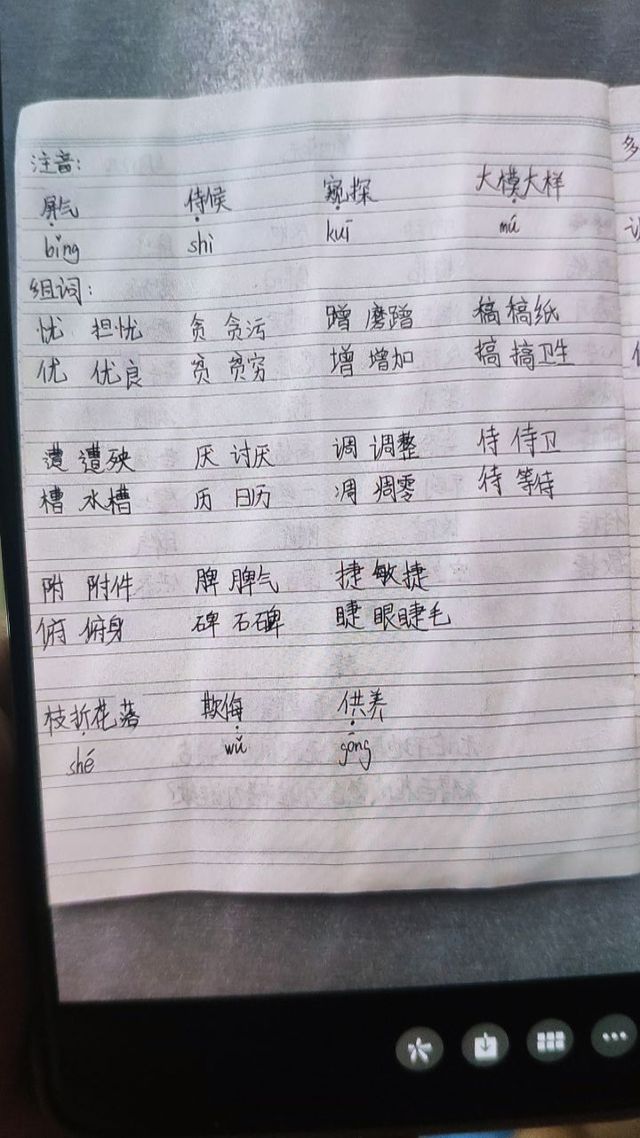 注音:
屏气 侍候 窥探 大模大样
bǐng shì kuī mú
组词:
忧 担忧 贪 贪污 蹭 磨蹭 稿 稿纸
优 优良 贫 贫穷 增 增加 搞 搞卫生
遭 遭殃 厌 讨厌 调 调整 侍 侍卫
槽 水槽 历 日历 凋 凋零 待 等待
附 附件 脾 脾气 捷 敏捷
俯 俯身 碑 石碑 睫 眼睫毛
枝折花落 欺侮 供养
shé wǔ gōng
多